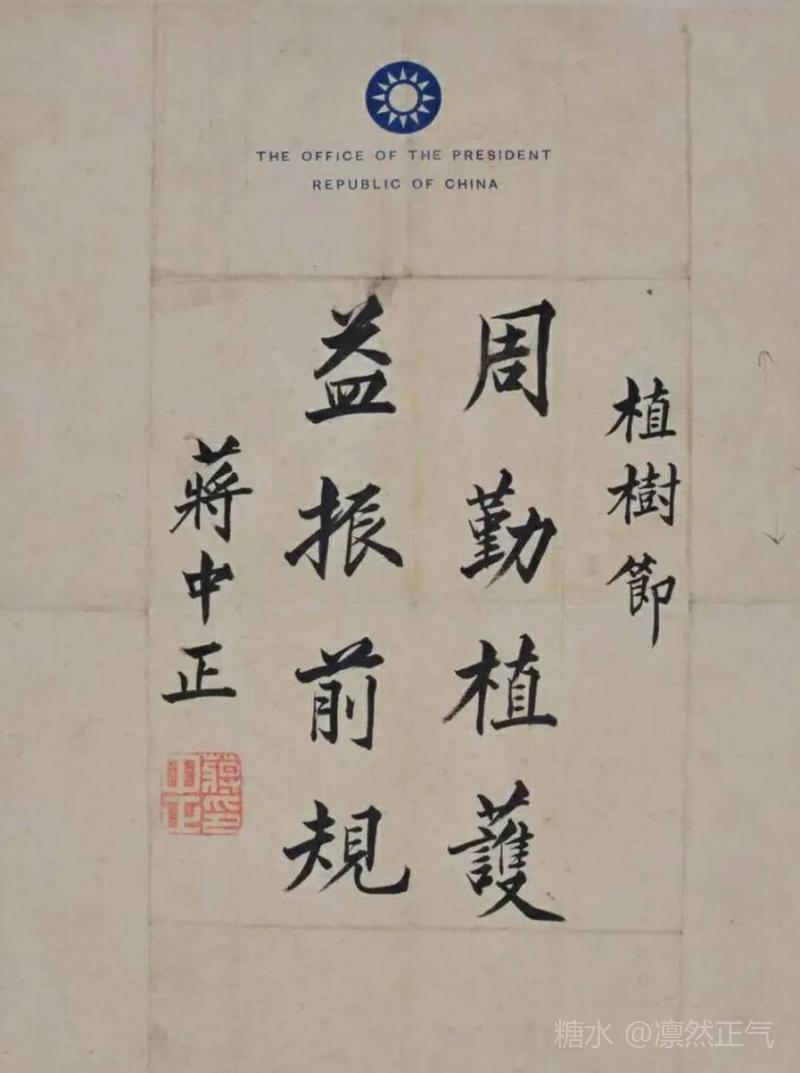 THE OFFICE OF THE PRESIDENT
REPUBLIC OF CHINA
植樹節
周勤植護
益振前規
蔣中正
蔣中正印
糖水 @凛然正气